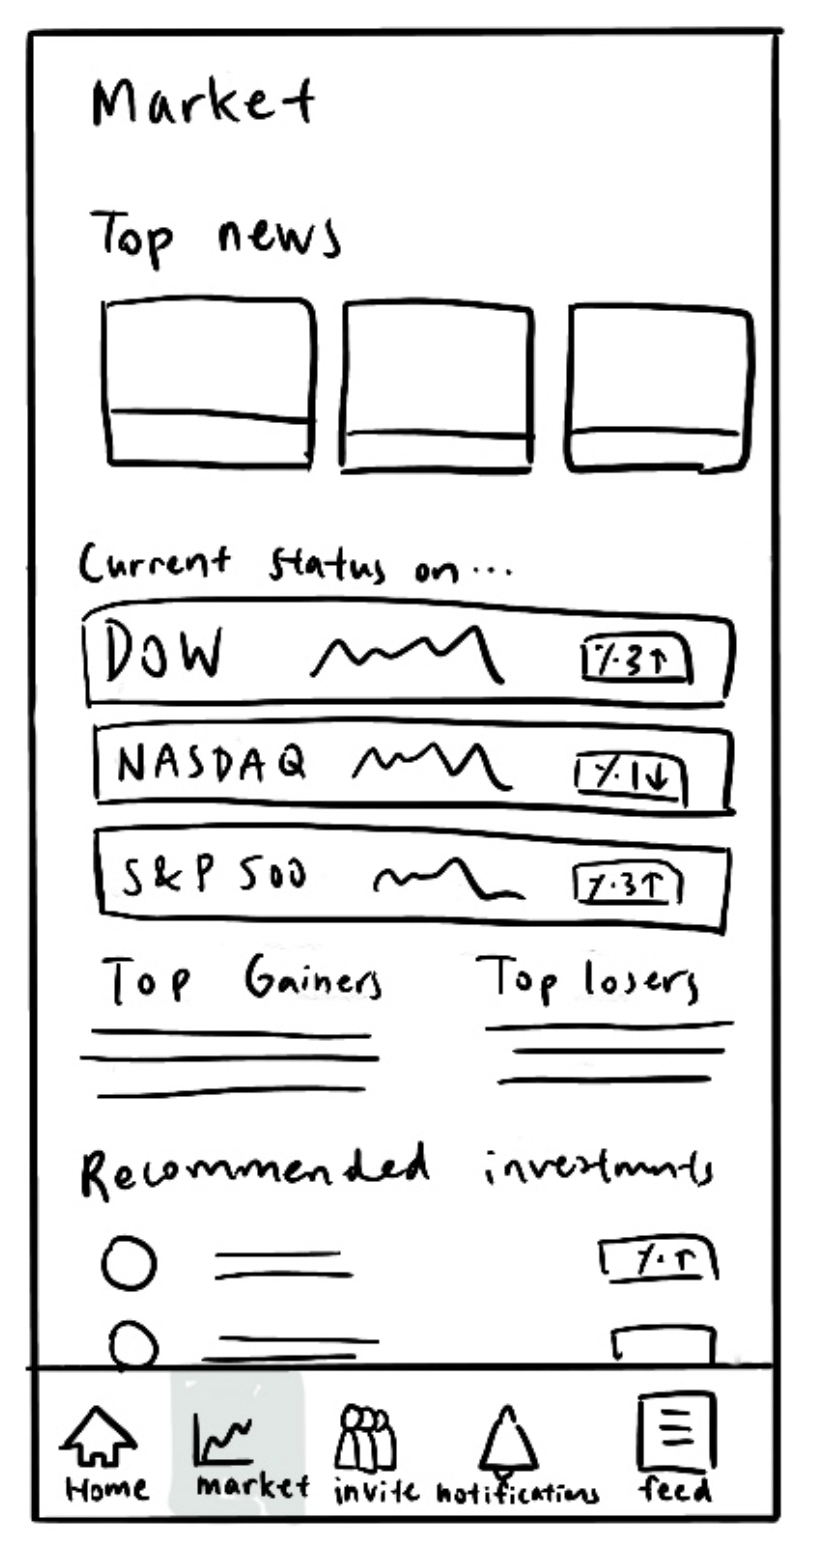 Market
Top news
Current status on...
DOW %3↑
NASDAQ %1↓
S&P 500 %3↑
Top Gainers Top losers
Recommended investments
%↑
Home market invite notifications feed